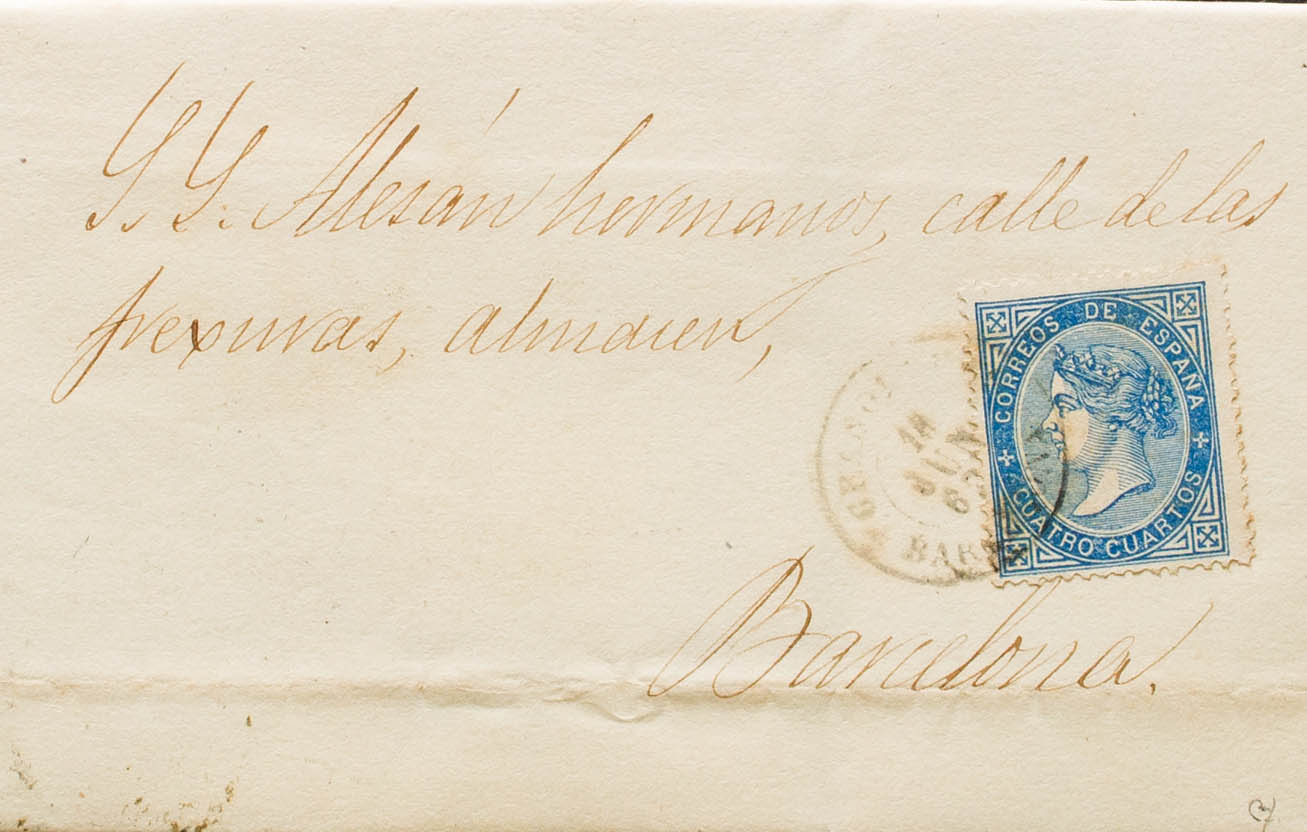 S. S. Alesán hermanos, calle de las
frexuras, almacen,
CORREOS DE ESPAÑA
CUATRO CUARTOS
14
JUN
Barcelona.